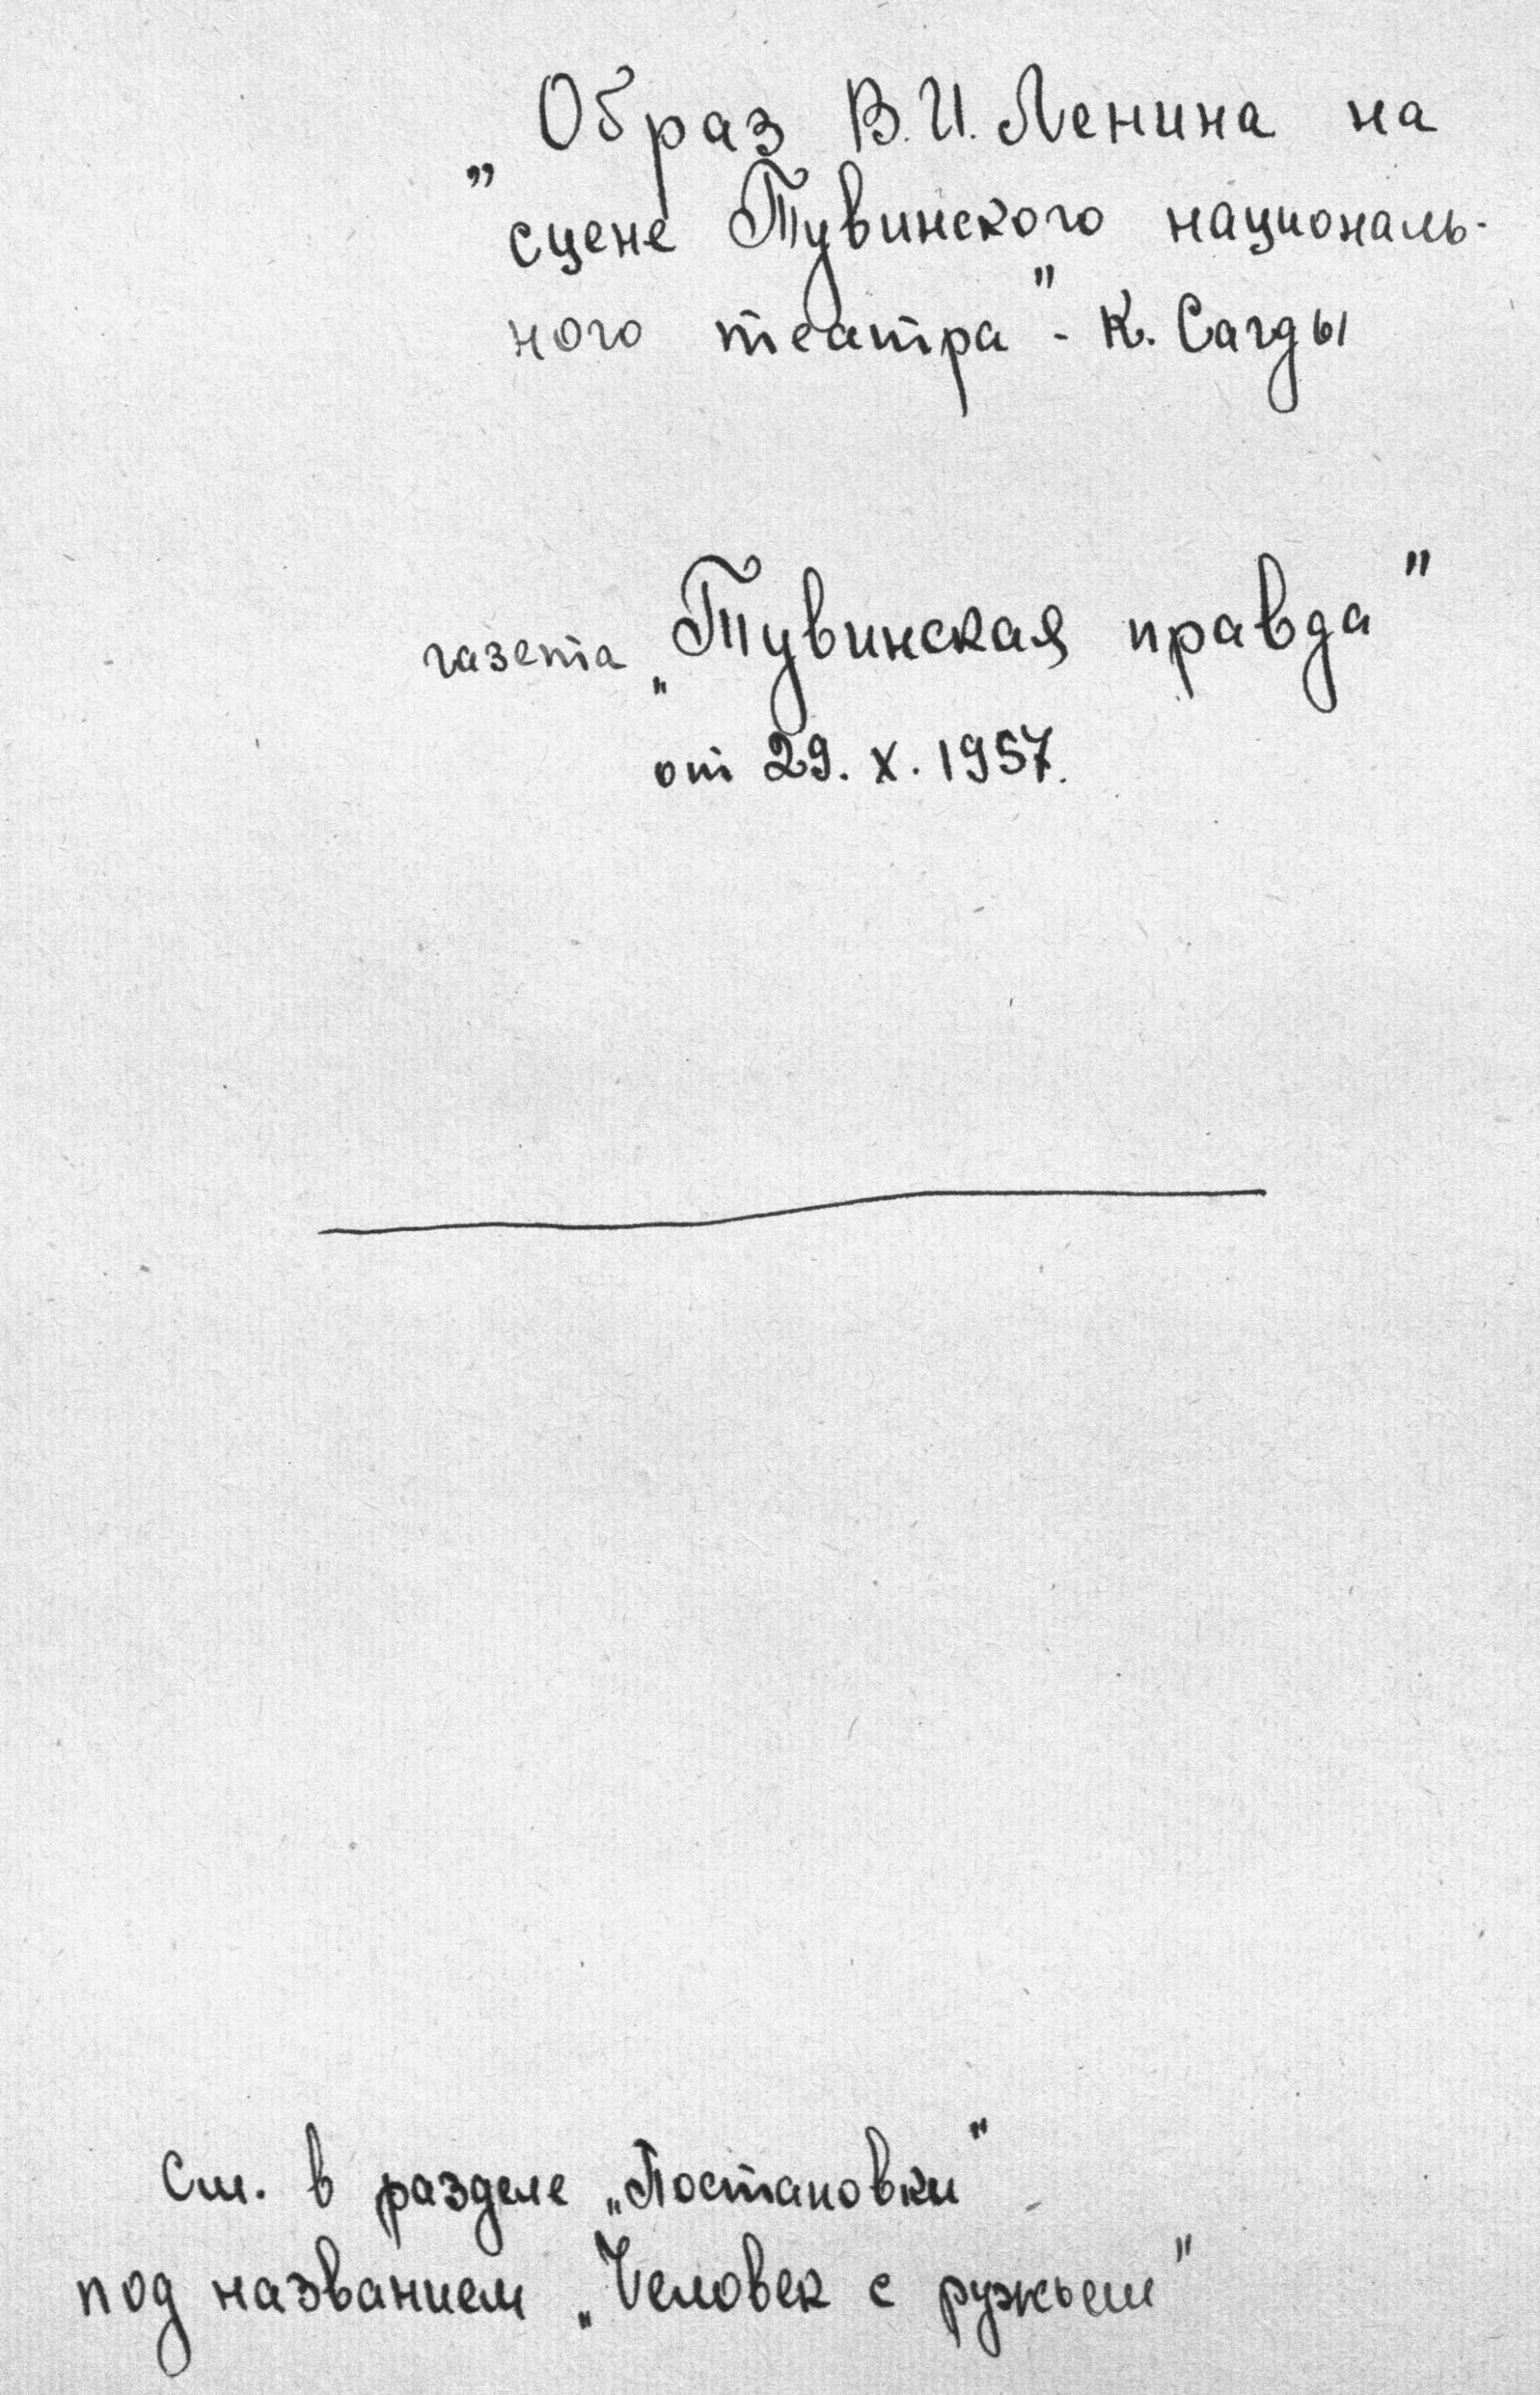 „Образ В.И. Ленина на
сцене Тувинского националь-
ного театра" - К. Сагды
газета „Тувинская правда"
от 29. X. 1957.
См. в разделе „Постановки"
под названием „Человек с ружьем"